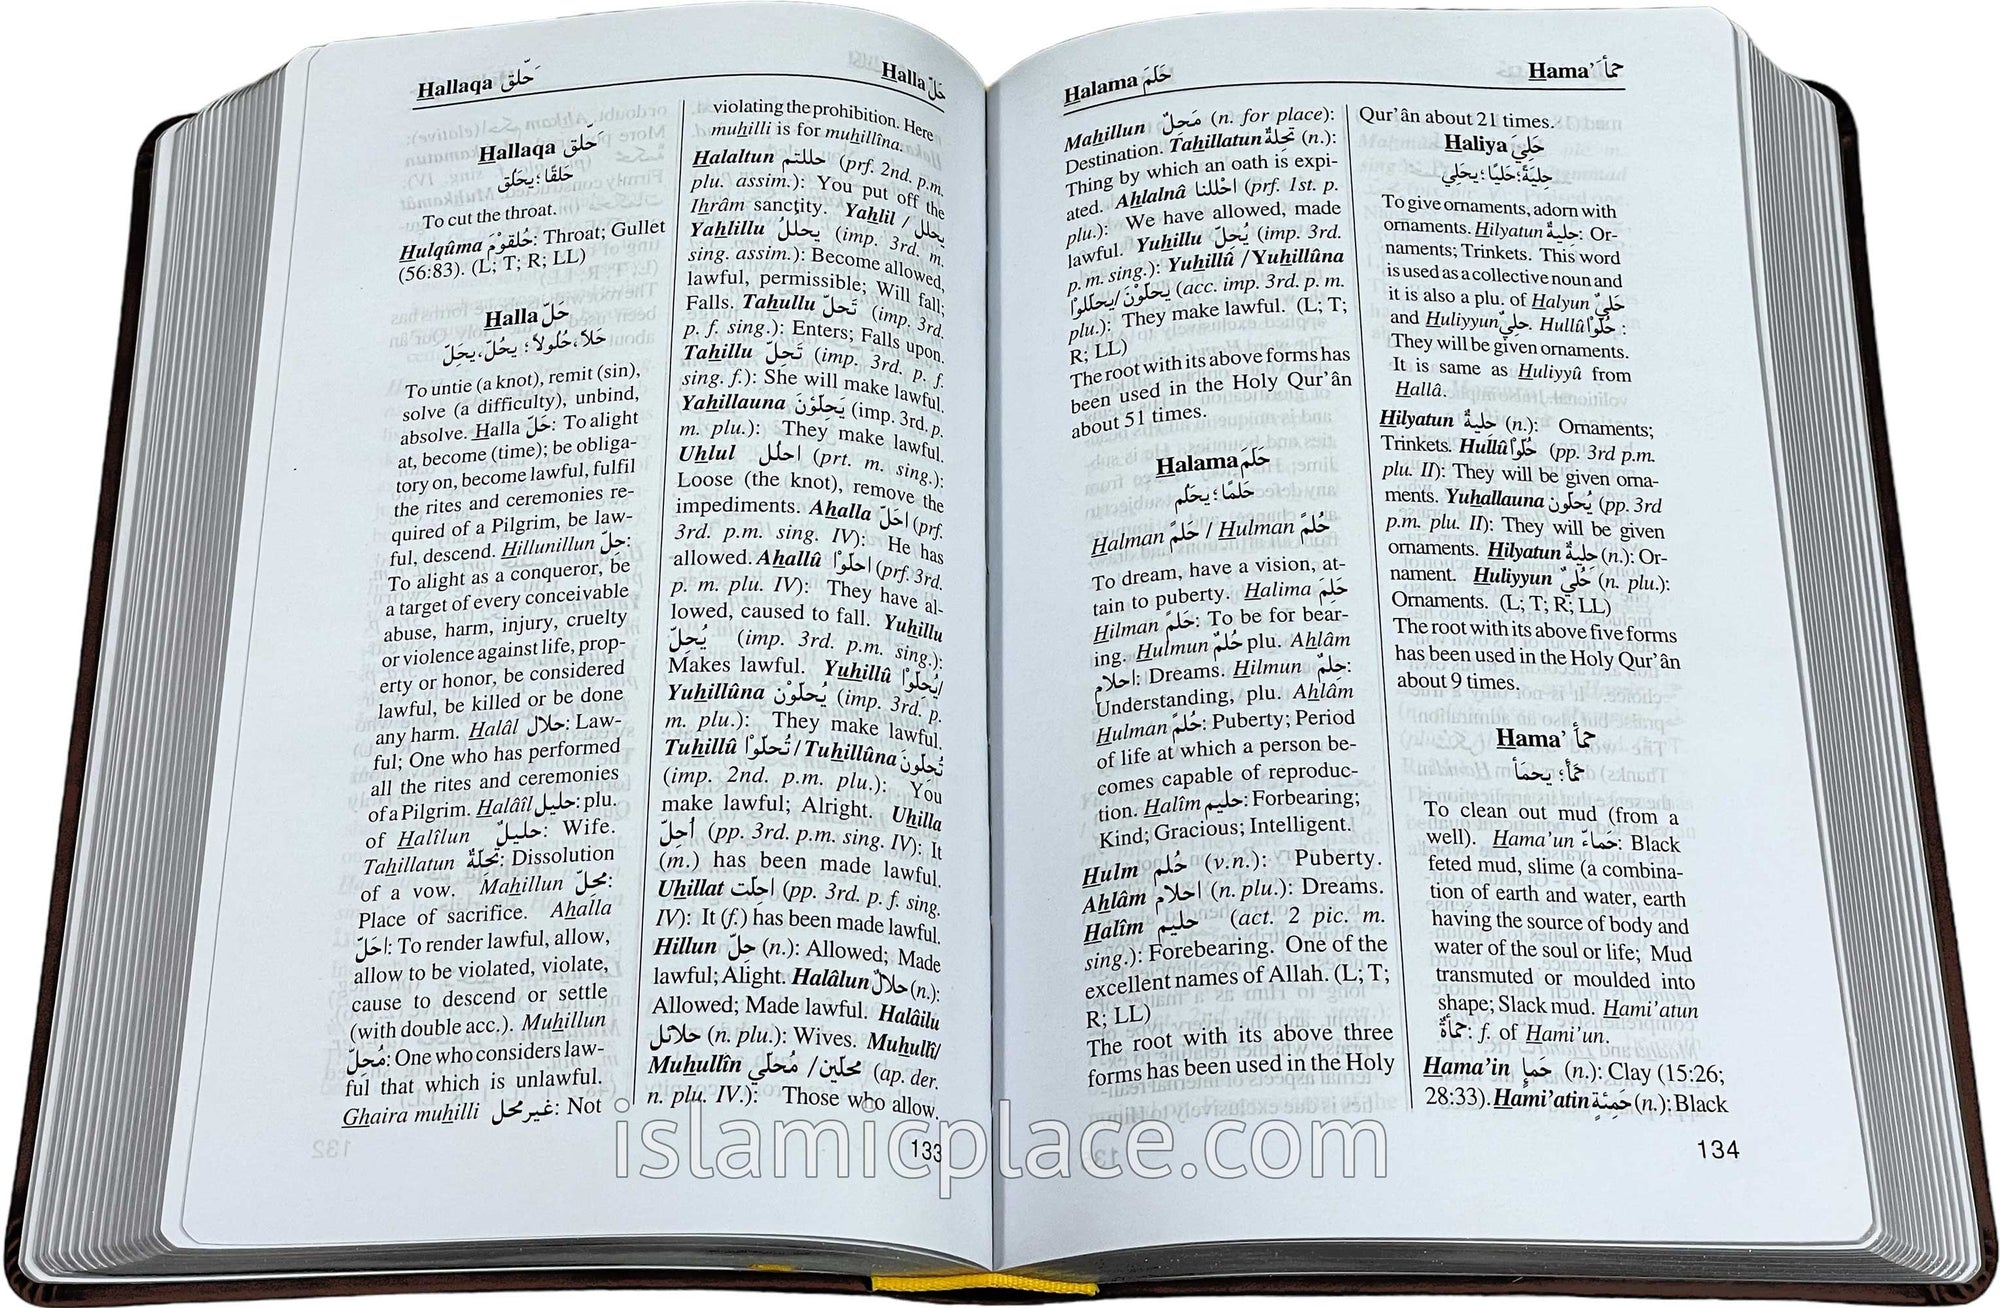 Hallaqa حَلّق
Halla حَلّ
Hallaqa حَلّق
حَلقًا؛ يحَلّق
To cut the throat.
Hulqûma حُلقوْمَ: Throat; Gullet
(56:83). (L; T; R; LL)
Halla حَلّ
حَلاً، حُلُولاً؛ يحُلّ، يحِلّ
To untie (a knot), remit (sin),
solve (a difficulty), unbind,
absolve. Halla حَلّ: To alight
at, become (time); be obliga-
tory on, become lawful, fulfil
the rites and ceremonies re-
quired of a Pilgrim, be law-
ful, descend. Hillunillun حِلّ:
To alight as a conqueror, be
a target of every conceivable
abuse, harm, injury, cruelty
or violence against life, prop-
erty or honor, be considered
lawful, be killed or be done
any harm. Halâl حلال: Law-
ful; One who has performed
all the rites and ceremonies
of a Pilgrim. Halâîl حليل: plu.
of Halîlun حليلٌ: Wife.
Tahillatun تحِلّةٌ: Dissolution
of a vow. Mahillun محِلّ:
Place of sacrifice. Ahalla
احَلّ: To render lawful, allow,
allow to be violated, violate,
cause to descend or settle
(with double acc.). Muhillun
مُحلّ: One who considers law-
ful that which is unlawful.
Ghaira muhilli غيرمحل: Not
violating the prohibition. Here
muhilli is for muhillîna.
Halaltun حللتم (prf. 2nd. p.m.
plu. assim.): You put off the
Ihrâm sanctity. Yahlil / يحلل
Yahlillu يحللُ (imp. 3rd. m.
sing. assim.): Become allowed,
lawful, permissible; Will fall;
Falls. Tahullu تَحلّ (imp. 3rd.
p. f. sing.): Enters; Falls upon.
Tahillu تَحلّ (imp. 3rd. p. f.
sing. f.): She will make lawful.
Yahillauna يَحِلّوْنَ (imp. 3rd. p.
m. plu.): They make lawful.
Uhlul احلُل (prt. m. sing.):
Loose (the knot), remove the
impediments. Ahalla احَلّ (prf.
3rd. p.m. sing. IV): He has
allowed. Ahallû احلّوْا (prf. 3rd.
p. m. plu. IV): They have al-
lowed, caused to fall. Yuhillu
يُحِلّ (imp. 3rd. p.m. sing.):
Makes lawful. Yuhillû يُحلّوْا/
Yuhillûna يحلّوْن (imp. 3rd. p.
m. plu.): They make lawful.
Tuhillû تُحلّوْا / Tuhillûna تُحِلّونَ
(imp. 2nd. p.m. plu.): You
make lawful; Alright. Uhilla
أحِلّ (pp. 3rd. p.m. sing. IV): It
(m.) has been made lawful.
Uhillat احِلّت (pp. 3rd. p. f. sing.
IV): It (f.) has been made lawful.
Hillun حِلّ (n.): Allowed; Made
lawful; Alight. Halâlun حلالٌ (n.):
Allowed; Made lawful. Halâilu
حلائل (n. plu.): Wives. Muhullî/
Muhullîn محلين/ مُحلي (ap. der.
n. plu. IV.): Those who allow.
133
Halama حَلَمَ
Hama' حمأ
Mahillun مَحِلّ (n. for place):
Destination. Tahillatun تحِلةٌ (n.):
Thing by which an oath is expi-
ated. Ahlalnâ احْللنا (prf. 1st. p.
plu.): We have allowed, made
lawful. Yuhillu يُحِلّ (imp. 3rd.
p. m. sing.): Yuhillû / Yuhillûna
يحلّوْنَ/يحللوْا (acc. imp. 3rd. p. m.
plu.): They make lawful. (L; T;
R; LL)
The root with its above forms has
been used in the Holy Qur'ân
about 51 times.
Halama حَلَمَ
حَلمًا؛ يحَلُم
Halman حَلمً / Hulman حُلمً
To dream, have a vision, at-
tain to puberty. Halima حَلِمَ
Hilman حَلمً: To be for bear-
ing. Hulmun حُلمٌ plu. Ahlâm
احلام: Dreams. Hilmun حِلمٌ:
Understanding, plu. Ahlâm
Hulman حُلمً: Puberty; Period
of life at which a person be-
comes capable of reproduc-
tion. Halîm حليم: Forbearing;
Kind; Gracious; Intelligent.
Hulm حُلم (v.n.): Puberty.
Ahlâm احلام (n. plu.): Dreams.
Halîm حليم (act. 2 pic. m.
sing.): Forebearing. One of the
excellent names of Allah. (L; T;
R; LL)
The root with its above three
forms has been used in the Holy
Qur'ân about 21 times.
Haliya حَلِيَ
حِليَةً؛ حَليًا؛ يحلَي
To give ornaments, adorn with
ornaments. Hilyatun حِليةٌ: Or-
naments; Trinkets. This word
is used as a collective noun and
it is also a plu. of Halyun حَليٌ
and Huliyyun حليٌ. Hullû حُلّوْا:
They will be given ornaments.
It is same as Huliyyû from
Hallâ.
Hilyatun حِليةٌ (n.): Ornaments;
Trinkets. Hullû حُلّوْا (pp. 3rd p.m.
plu. II): They will be given orna-
ments. Yuhallauna يُحلّون (pp. 3rd
p.m. plu. II): They will be given
ornaments. Hilyatun حِليةٌ (n.): Or-
nament. Huliyyun حُليٌ (n. plu.):
Ornaments. (L; T; R; LL)
The root with its above five forms
has been used in the Holy Qur'ân
about 9 times.
Hama' حمأ
حَمَأ؛ يحمَأ
To clean out mud (from a
well). Hama'un حماءٌ: Black
feted mud, slime (a combina-
tion of earth and water, earth
having the source of body and
water of the soul or life; Mud
transmuted or moulded into
shape; Slack mud. Hami'atun
حمأةٌ: f. of Hami'un.
Hama'in حماٍ (n.): Clay (15:26;
28:33). Hami'atin حَمِئةٍ (n.): Black
134
islamicplace.com